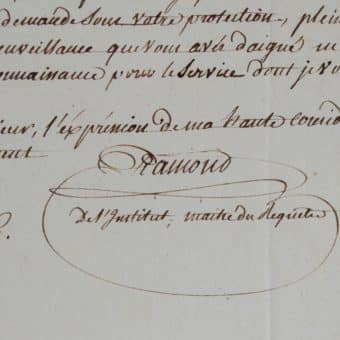 demande sous votre protection, plein
veillance que vous avés daigné m
onnaissance pour le Service dont je vo
ieur, l'expression de ma haute consid
ant
Ramond
De l'Institut, maître des Requetes